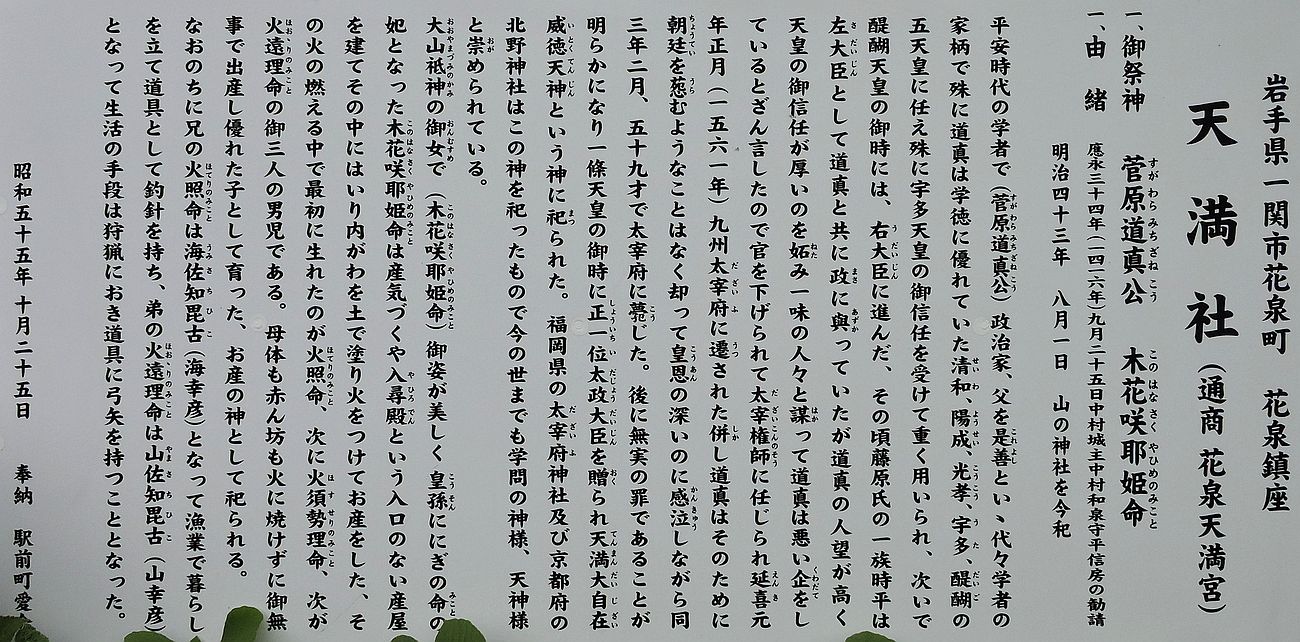 岩手県一関市花泉町　花泉鎮座
天満社（通商 花泉天満宮）
一、御祭神　菅原道真公　木花咲耶姫命
一、由緒　應永三十四年（一四二六年）九月二十五日中村城主中村和泉守平信房の勧請
明治四十三年　八月一日　山の神社を今祀
平安時代の学者で（菅原道真公）政治家、父を是善といゝ代々学者の
家柄で殊に道真は学徳に優れていた清和、陽成、光孝、宇多、醍醐の
五天皇に任え殊に宇多天皇の御信任を受けて重く用いられ、次いで
醍醐天皇の御時には、右大臣に進んだ、その頃藤原氏の一族時平は
左大臣として道真と共に政に與っていたが道真の人望が高く
天皇の御信任が厚いのを妬み一味の人々と謀って道真は悪い企をし
ているとざん言したので官を下げられて太宰権師に任じられ延喜元
年正月（一五六一年）九州太宰府に遷された併し道真はそのために
朝廷を葱むようなことはなく却って皇恩の深いのに感泣しながら同
三年二月、五十九才で太宰府に薨じした。後に無実の罪であることが
明らかになり一條天皇の御時に正一位太政大臣を贈られ天満大自在
威徳天神という神に祀られた。福岡県の太宰府神社及び京都府の
北野神社はこの神を祀ったもので今の世までも学問の神様、天神様
と崇められている。
大山祗神の御女で（木花咲耶姫命）御姿が美しく皇孫ににぎの命の
妃となった木花咲耶姫命は産気づくや入尋殿という入口のない産屋
を建てその中にはいり内がわを土で塗り火をつけてお産をした、そ
の火の燃える中で最初に生れたのが火照命、次に火須勢理命、次が
火遠理命の御三人の男児である。母体も赤ん坊も火に焼けずに御無
事で出産し優れた子として育った、お産の神として祀られる。
なおのちに兄の火照命は海佐知毘古（海幸彦）となって漁業で暮らし
を立て道具として釣針を持ち、弟の火遠理命は山佐知毘古（山幸彦）
となって生活の手段は狩猟におき道具に弓矢を持つこととなった。
昭和五十五年 十月二十五日　奉納　駅前町愛